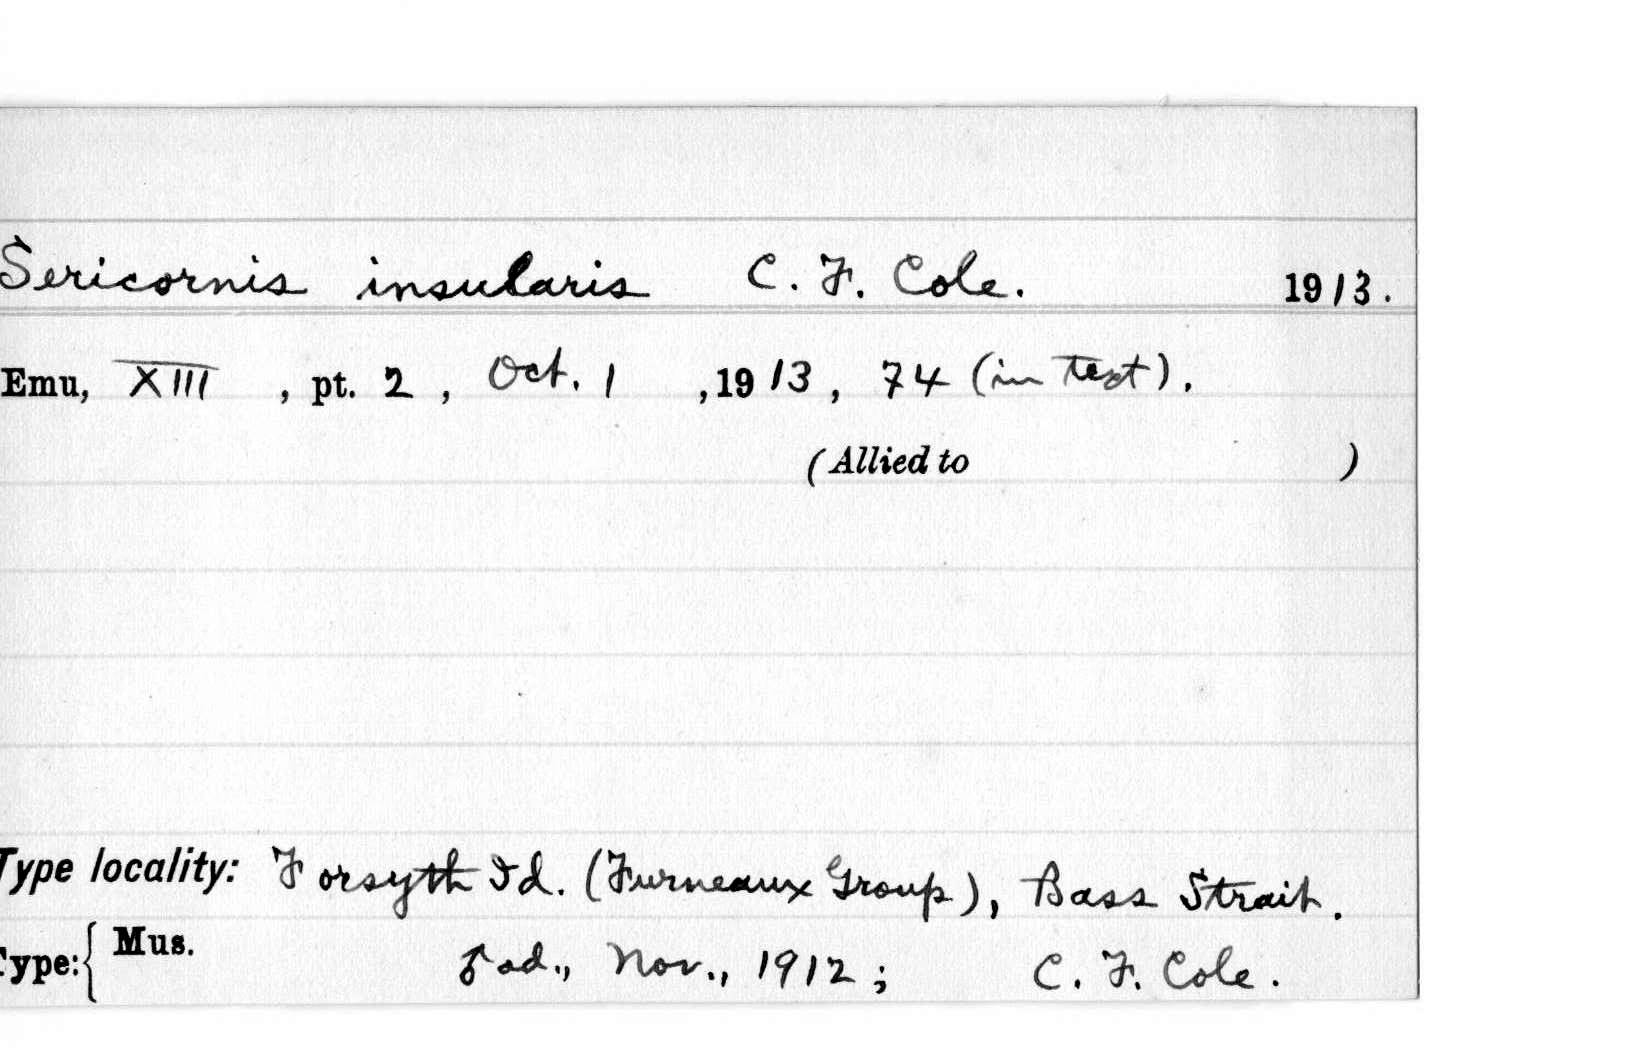 Sericornis insularis C. F. Cole. 1913.
Emu, XIII , pt. 2 , Oct. 1 , 1913 , 74 (in text).
(Allied to )
Type locality: Forsyth Id. (Furneaux Group), Bass Strait.
Type: { Mus. ♂ ad., Nov., 1912 ; C. F. Cole.